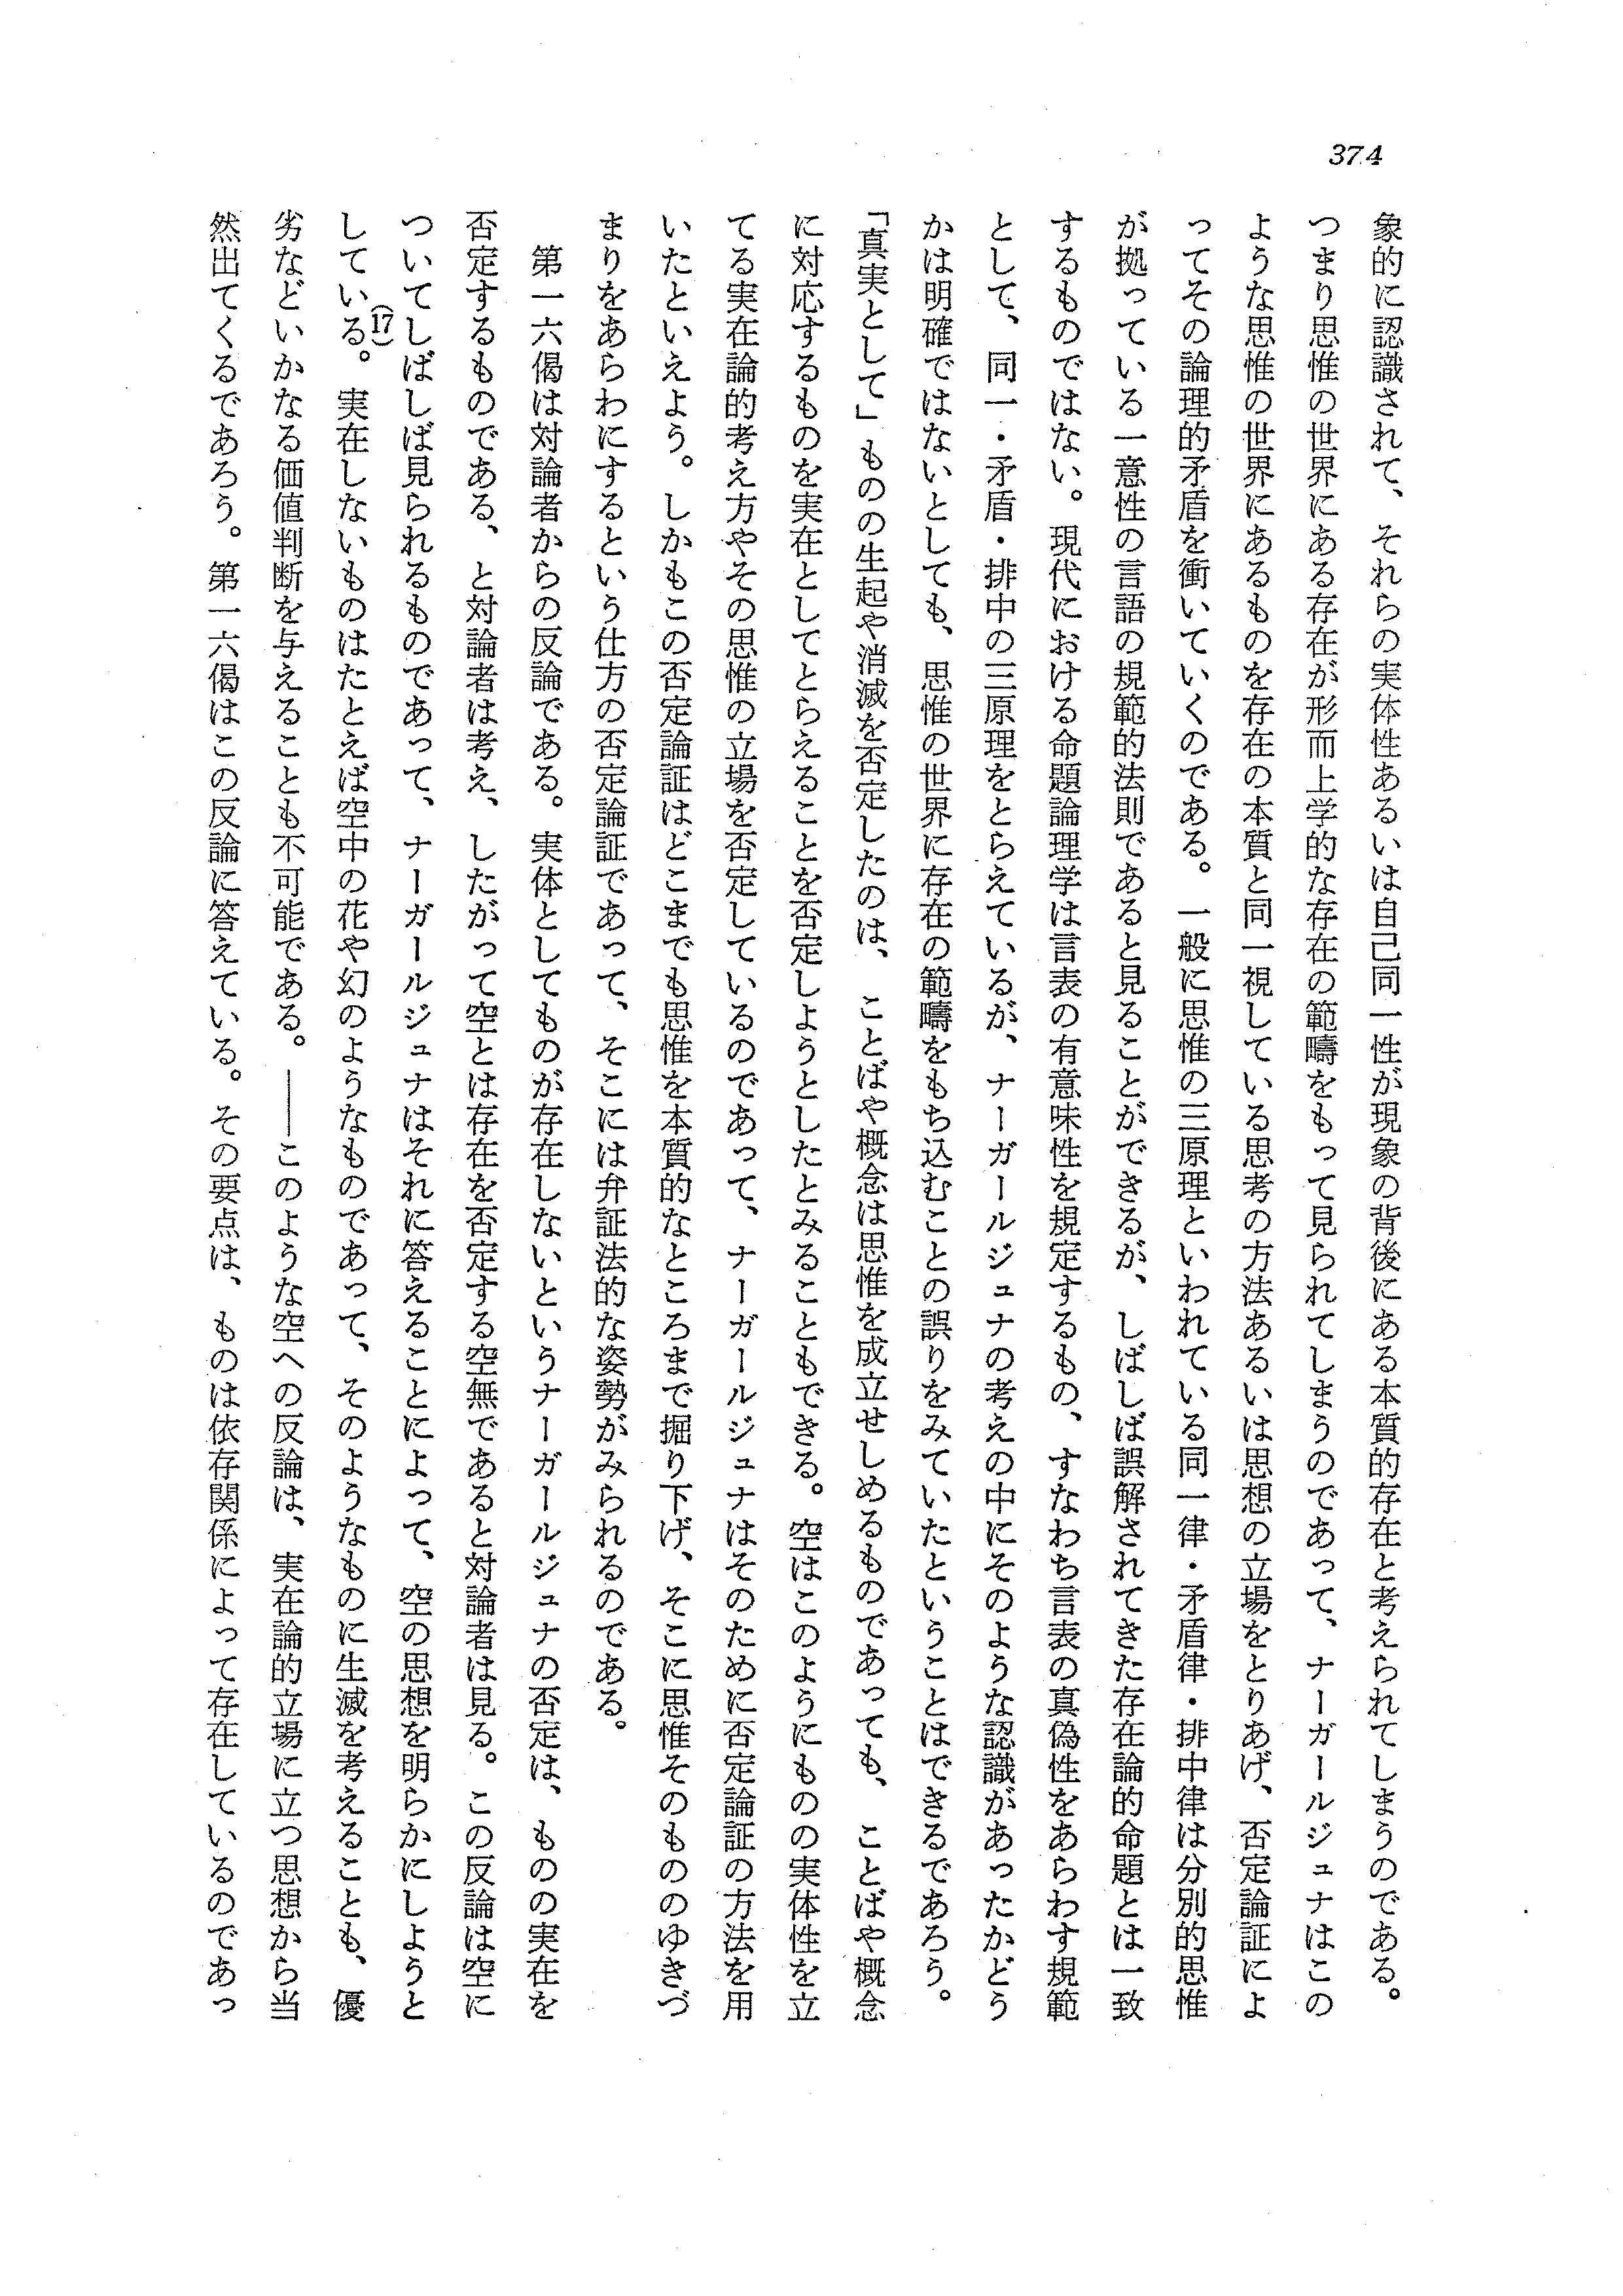 374
象的に認識されて、それらの実体性あるいは自己同一性が現象の背後にある本質的存在と考えられてしまうのである。
つまり思惟の世界にある存在が形而上学的な存在の範疇をもって見られてしまうのであって、ナーガールジュナはこの
ような思惟の世界にあるものを存在の本質と同一視している思考の方法あるいは思想の立場をとりあげ、否定論証によ
ってその論理的矛盾を衝いていくのである。一般に思惟の三原理といわれている同一律・矛盾律・排中律は分別的思惟
が拠っている一意性の言語の規範的法則であると見ることができるが、しばしば誤解されてきた存在論的命題とは一致
するものではない。現代における命題論理学は言表の有意味性を規定するもの、すなわち言表の真偽性をあらわす規範
として、同一・矛盾・排中の三原理をとらえているが、ナーガールジュナの考えの中にそのような認識があったかどう
かは明確ではないとしても、思惟の世界に存在の範疇をもち込むことの誤りをみていたということはできるであろう。
「真実として」ものの生起や消滅を否定したのは、ことばや概念は思惟を成立せしめるものであっても、ことばや概念
に対応するものを実在としてとらえることを否定しようとしたとみることもできる。空はこのようにものの実体性を立
てる実在論的考え方やその思惟の立場を否定しているのであって、ナーガールジュナはそのために否定論証の方法を用
いたといえよう。しかもこの否定論証はどこまでも思惟を本質的なところまで掘り下げ、そこに思惟そのもののゆきづ
まりをあらわにするという仕方の否定論証であって、そこには弁証法的な姿勢がみられるのである。
第一六偈は対論者からの反論である。実体としてものが存在しないというナーガールジュナの否定は、ものの実在を
否定するものである、と対論者は考え、したがって空とは存在を否定する空無であると対論者は見る。この反論は空に
ついてしばしば見られるものであって、ナーガールジュナはそれに答えることによって、空の思想を明らかにしようと
している。(17)実在しないものはたとえば空中の花や幻のようなものであって、そのようなものに生滅を考えることも、優
劣などいかなる価値判断を与えることも不可能である。――このような空への反論は、実在論的立場に立つ思想から当
然出てくるであろう。第一六偈はこの反論に答えている。その要点は、ものは依存関係によって存在しているのであっ